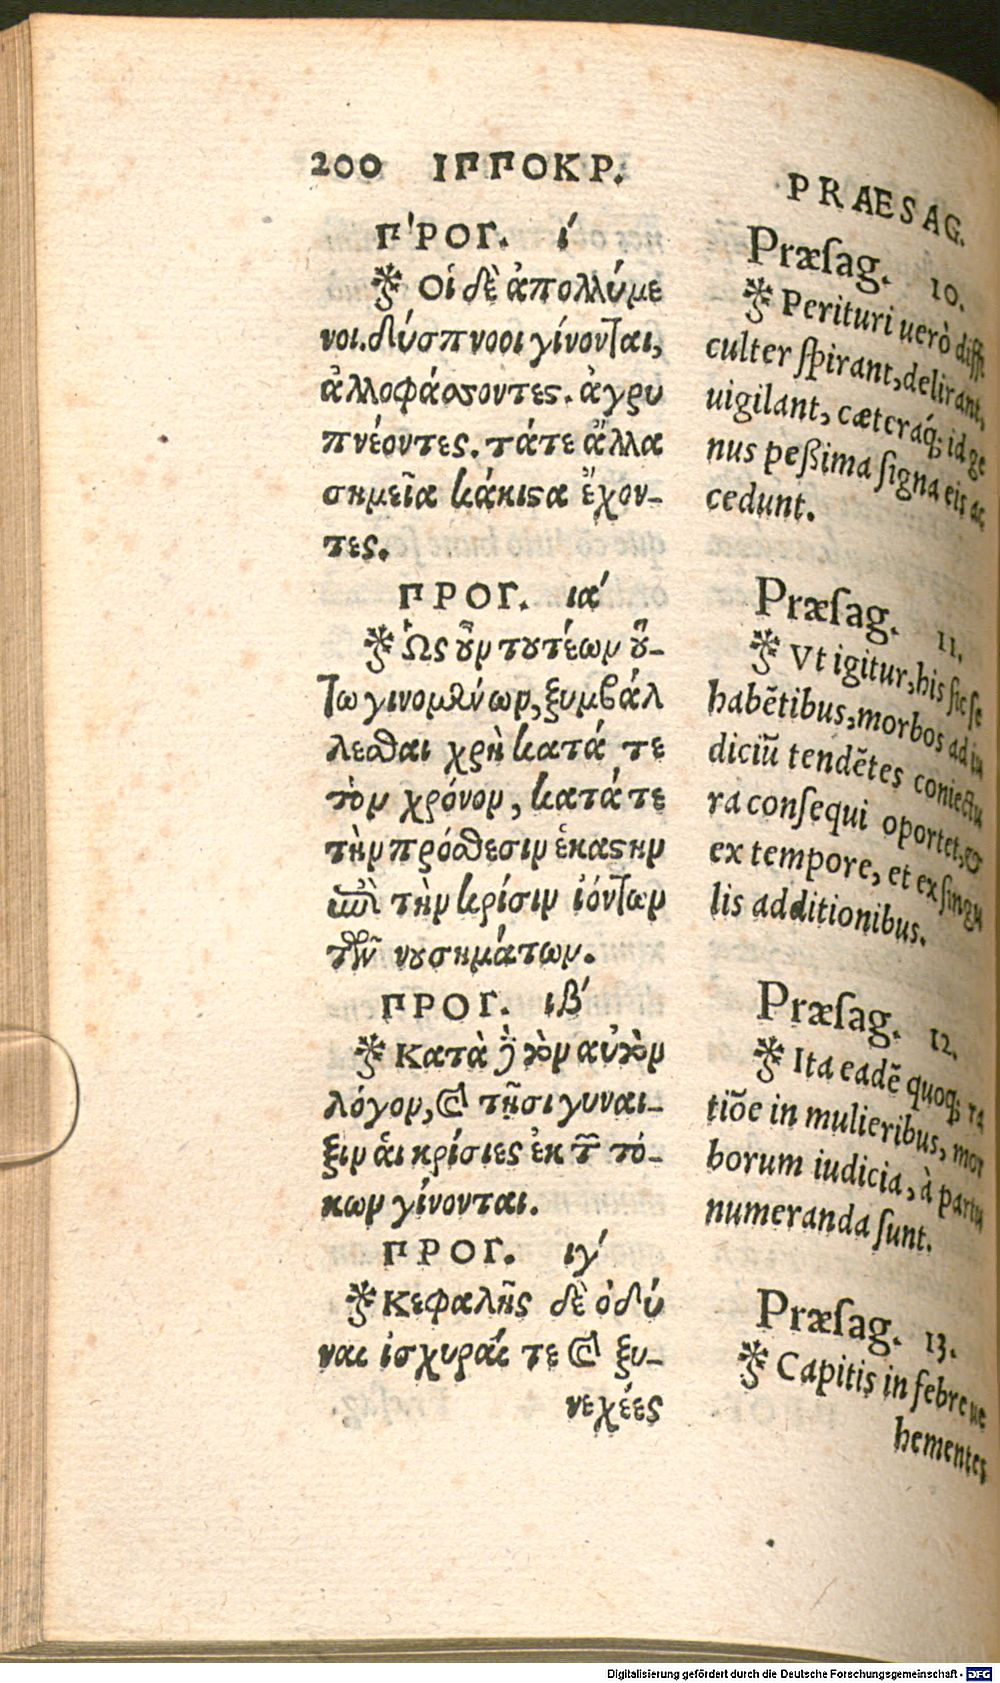 200 ΙΠΠΟΚΡ.
Π'ΡΟΓ. ί
Οἱ δὲ ἀπολλύμε
νοι. δύσπνοοι γίνονται,
ἀλλοφάσσοντες. ἀγρυ
πνέοντες. τάτε ἄλλα
σημεῖα κάκιϛα ἔχον-
τες.
ΠΡΟΓ. ια΄
Ὡς οὖν τουτέων οὕ-
τω γινομένων, ξυμβάλ
λεσθαι χρὴ κατά τε
τὸν χρόνον, κατά τε
τὴν πρόσθεσιν ἑκάϛην
ἐπὶ τὴν κρίσιν ἰόντων
τῶν νουσημάτων.
ΠΡΟΓ. ιβ΄
Κατὰ δὲ τὸν αὐτὸν
λόγον, καὶ τῇσι γυναι-
ξιν ἁι κρίσιες ἐκ τῶν τό-
κων γίνονται.
ΠΡΟΓ. ιγ΄
Κεφαλῆς δὲ ὀδύ
ναι ἰσχυραί τε καὶ ξυ-
νεχέες
PRAESAG.
Præſag. 10.
Perituri uerò diffi
culter ſpirant, delirant,
uigilant, cæteraq́; id ge
nus peßima ſigna eis ac
cedunt.
Præſag. 11.
Vt igitur, his ſic ſe
habẽtibus, morbos ad iu
diciũ tendẽtes coniectu
ra conſequi oportet, &
ex tempore, et ex ſingu
lis additionibus.
Præſag. 12.
Ita eadẽ quoq; ra
tiõe in mulieribus, mor
borum iudicia, à partu
numeranda ſunt.
Præſag. 13.
Capitis in febre ue
hementes
Digitalisierung gefördert durch die Deutsche Forschungsgemeinschaft - DFG